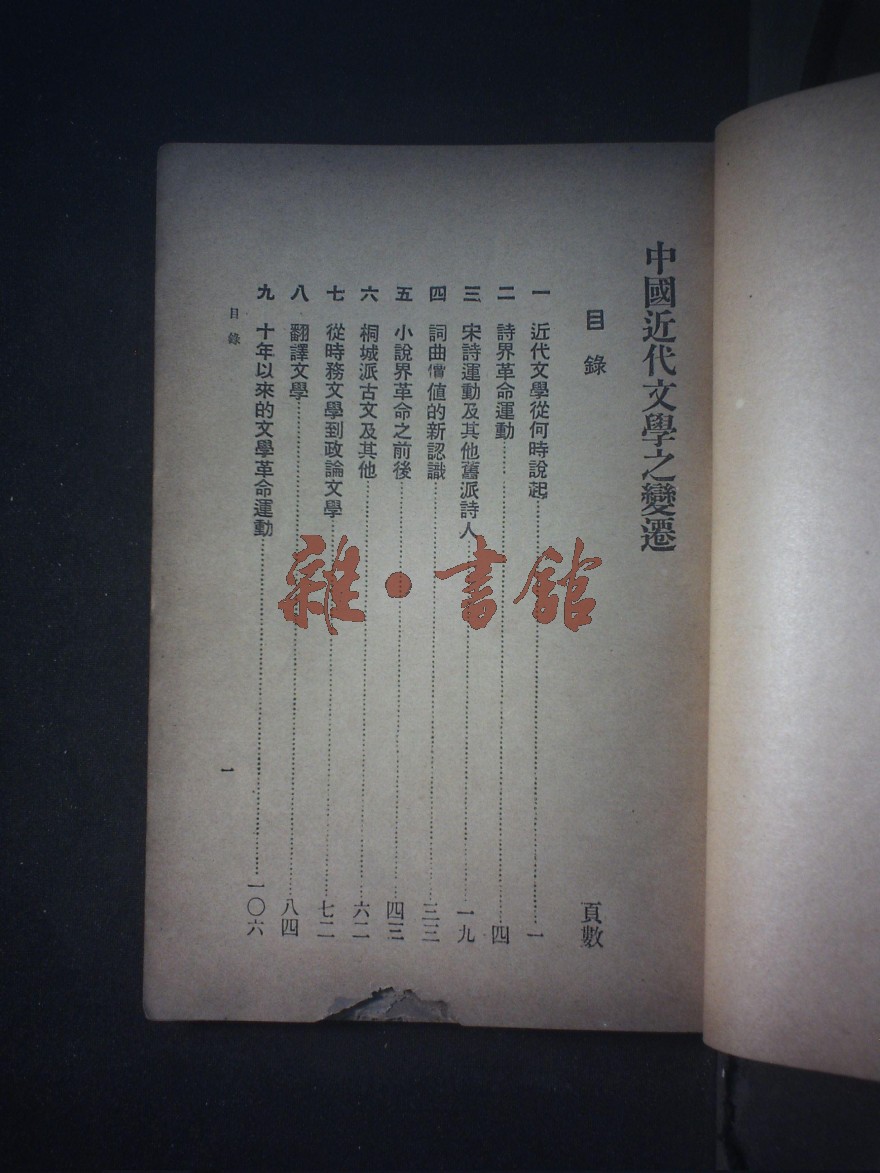 中國近代文學之變遷
目錄 頁數
一 近代文學從何時說起 一
二 詩界革命運動 四
三 宋詩運動及其他舊派詩人 一九
四 詞曲價值的新認識 三三
五 小說界革命之前後 四三
六 桐城派古文及其他 六二
七 從時務文學到政論文學 七二
八 翻譯文學 八四
九 十年以來的文學革命運動 一〇六
目錄 一
雜·書館